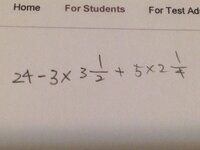 Home For Students For Test Ad
24 - 3 × 3 1/2 + 5 × 2 1/4